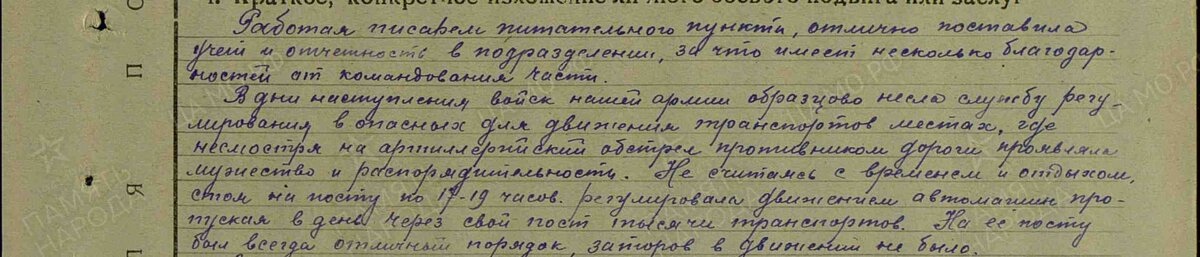 1. Краткое, конкретное изложение личного боевого подвига или заслуг
Работая писарем питательного пункта, отлично поставила
учет и отчетность в подразделении, за что имеет несколько благодар-
ностей от командования части.
В дни наступления войск нашей армии образцово несла службу регу-
лирования в опасных для движения транспортов местах, где
несмотря на артиллерийский обстрел противником дороги проявляла
мужество и распорядительность. Не считаясь с временем и отдыхом,
стоя на посту по 17-19 часов. регулировала движением автомашин про-
пуская в день через свой пост тысячи транспортов. На ее посту
был всегда отличный порядок, заторов в движений не было.
ПАМЯТЬ
НАРОДА